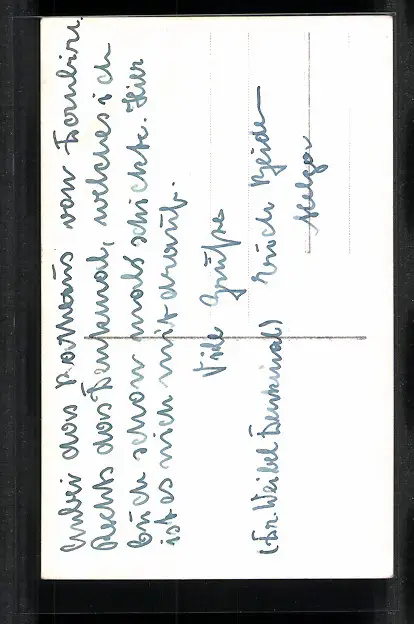 Anbei das Rathaus von Dornbirn.
Rechts das Denkmal, welches ich
Euch schon mals schickte. Hier
ist es nich mit drauf.
Viele Grüße
Euch Beide
Helga
(Dr. Waibel Denkmal)